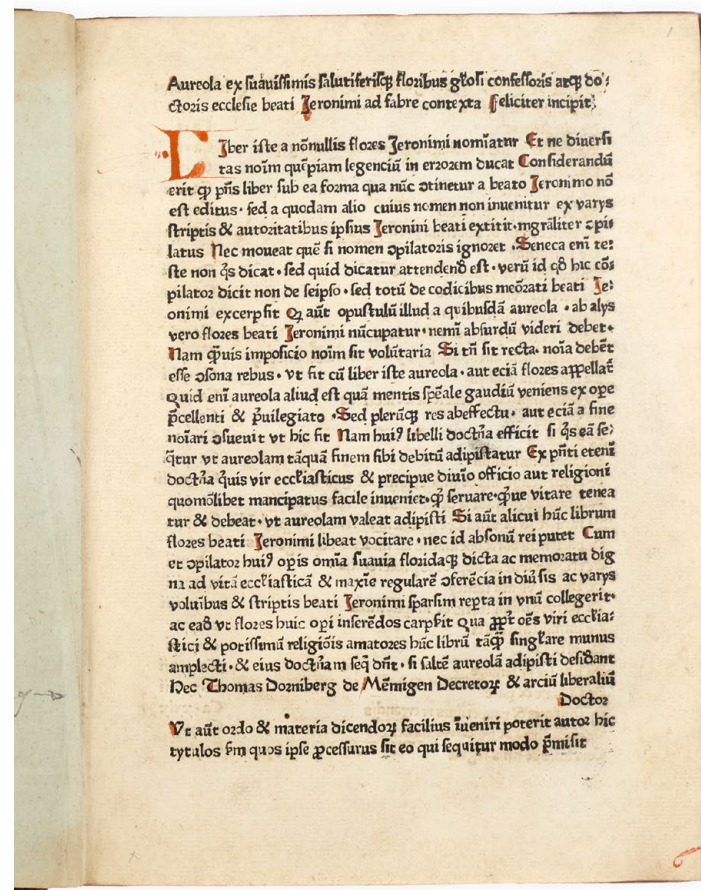 Aureola ex suauissimis salutiferisqꝫ floribus gl̄osi confessoris atqꝫ do⸗
ctoris ecclesie beati Jeronimi ad fabre contexta feliciter incipit.
Liber iste a nōnullis flores Jeronimi nomīatur Et ne diuersi
tas noīm quēpiam legenciū in errorem ducat Considerandū
erit ꝙ pn̄s liber sub ea forma qua nūc ↄtinetur a beato Jeronimo nō
est editus· sed a quodam alio cuius nomen non inuenitur ex varys
scriptis & autoritatibus ipsius Jeronini beati extitit· mgr̄aliter ↄpi
latus Nec moueat quē si nomen ↄpilatoris ignoret ·Seneca enī te⸗
ste non q̄s dicat· sed quid dicatur attendendō est· verū id qd̄ hic cō⸗
pilator dicit non de seipso· sed totū de codicibus meōrati beati Je⸗
onimi excerpsit Q aūt opustulū illud a quibusdā aureola · ab alys
vero flores beati Jeronimi nūcupatur· nemī absurdū videri debet·
Nam q̄uis imposicio noīm sit volūtaria Si tn̄ sit recta· noīa debēt
esse ↄsona rebus· vt fit cū liber iste aureola· aut eciā flores appellat̄
Quid enī aureola aliud est quā mentis spēale gaudiū veniens ex ope
p̄cellenti & p̄uilegiato ·Sed plerūqꝫ res abeffectu· aut eciā a fine
noīari ↄsueuit vt hic fit Nam huiꝰ libelli doctn̄a efficit si q̄s eā se⸗
q̄tur vt aureolam tāquā finem sibi debitū adipiscatur Ex pn̄ti etenī
doctn̄a quis vir eccl̄iasticus & precipue diuīo officio aut religioni
quomōlibet mancipatus facile inueniet· q̄ seruare· q̄ue vitare tenea
tur & debeat· vt aureolam valeat adipisci Si aūt alicui hūc librum
flores beati Jeronimi libeat vocitare· nec id absonū rei putet Cum
et ↄpilator huiꝰ opis omīa suauia floridaqꝫ dicta ac memoratu dig
na ad vitā eccl̄iasticā & maxīe regularē ↄferēcia in diūsis ac varys
voluībus & scriptis beati Jeronimi sparsim rep̄ta in vnū collegerit·
ac eaꝺ vt flores huic opi inserēdos carpsit Qua ꝓpt̄ oēs viri eccl̄ia⸗
stici & potissimū religiōis amatores hūc librū tāꝙ̄ singl̄are munus
amplecti· & eius doctn̄am seq̄ dn̄t· si saltē aureolā adipisci desid̄ant
Hec Thomas Dorniberg de Mēmigen Decretoꝝ & arciū liberaliū
Doctor
Vt aūt ordo & materia dicendoꝝ facilius īueniri poterit autor hic
tytulos s̄m quos ipse ꝓcessurus sit eo qui sequitur modo p̄misit